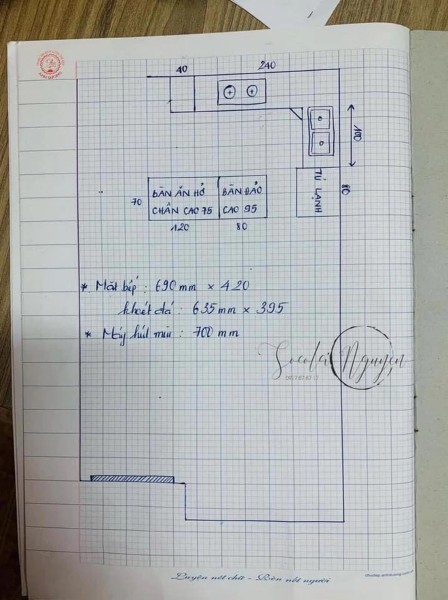 40 240
100
TỦ LẠNH
80
70
BÀN ĂN HỞ
CHÂN CAO 75
BÀN ĐẢO
CAO 95
120 80
* Mặt bếp : 690 mm × 420
khoét đá : 635 mm × 395
* Máy hút mùi : 700 mm
Socola Nguyễn
Luyện nét chữ - Rèn nết người